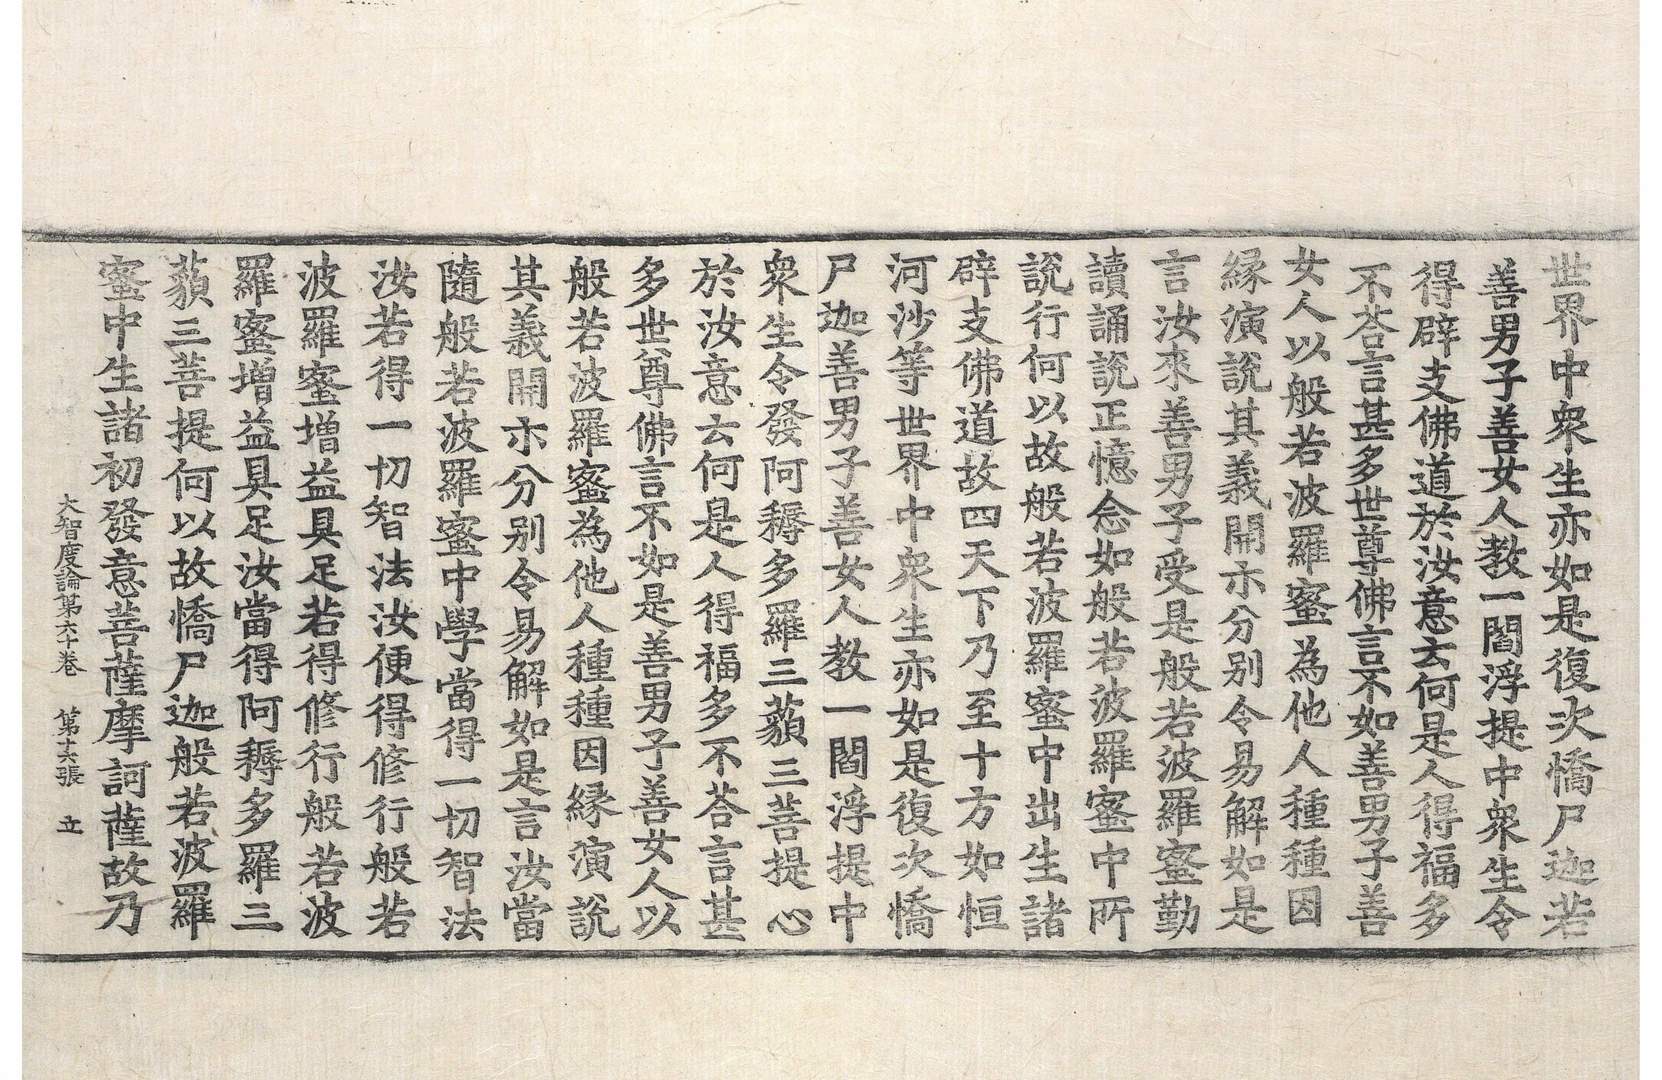 世界中衆生亦如是復次憍尸迦若
善男子善女人教一閻浮提中衆生令
得辟支佛道於汝意云何是人得福多
不荅言甚多世尊佛言不如善男子善
女人以般若波羅蜜為他人種種因
縁演說其義開示分別令易解如是
言汝來善男子受是般若波羅蜜勤
讀誦說正憶念如般若波羅蜜中所
說行何以故般若波羅蜜中出生諸
辟支佛道故四天下乃至十方如恒
河沙等世界中衆生亦如是復次憍
尸迦善男子善女人教一閻浮提中
衆生令發阿耨多羅三藐三菩提心
於汝意云何是人得福多不荅言甚
多世尊佛言不如是善男子善女人以
般若波羅蜜為他人種種因縁演說
其義開示分別令易解如是言汝當
隨般若波羅蜜中學當得一切智法
汝若得一切智法汝便得修行般若
波羅蜜增益具足若得修行般若波
羅蜜增益具足汝當得阿耨多羅三
藐三菩提何以故憍尸迦般若波羅
蜜中生諸初發意菩薩摩訶薩故乃
大智度論第六十卷 第十六張 立